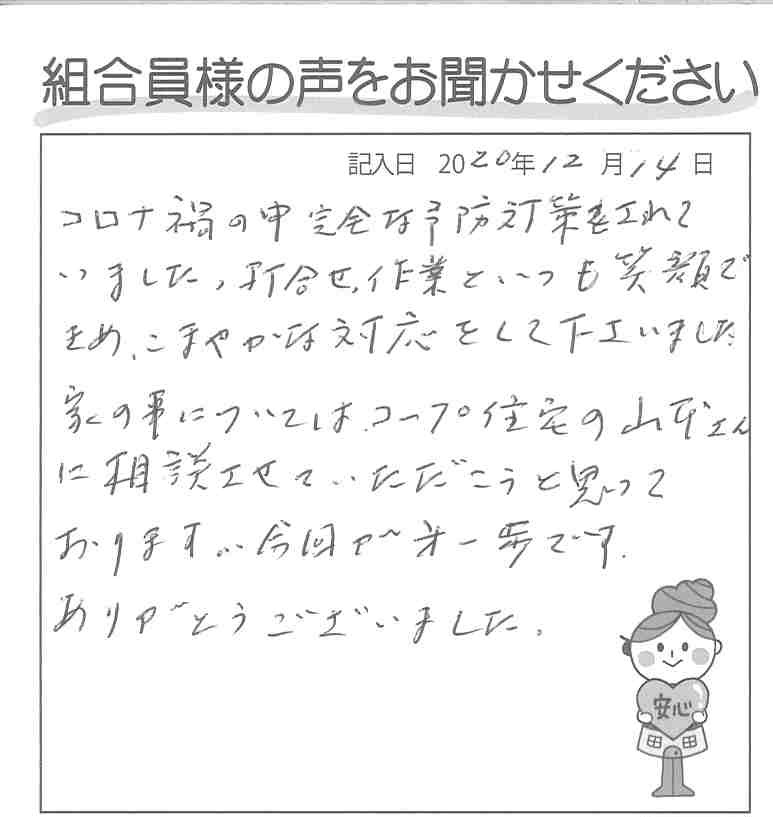 組合員様の声をお聞かせください
記入日 2020年12月14日
コロナ禍の中完全な予防対策をされて
いました、打合せ、作業といつも笑顔で
きめ、こまやかな対応をして下さいました
家の事については、コープ住宅の山本さん
に相談させていただこうと思って
おります。今回が第一歩です。
ありがとうございました。
安心